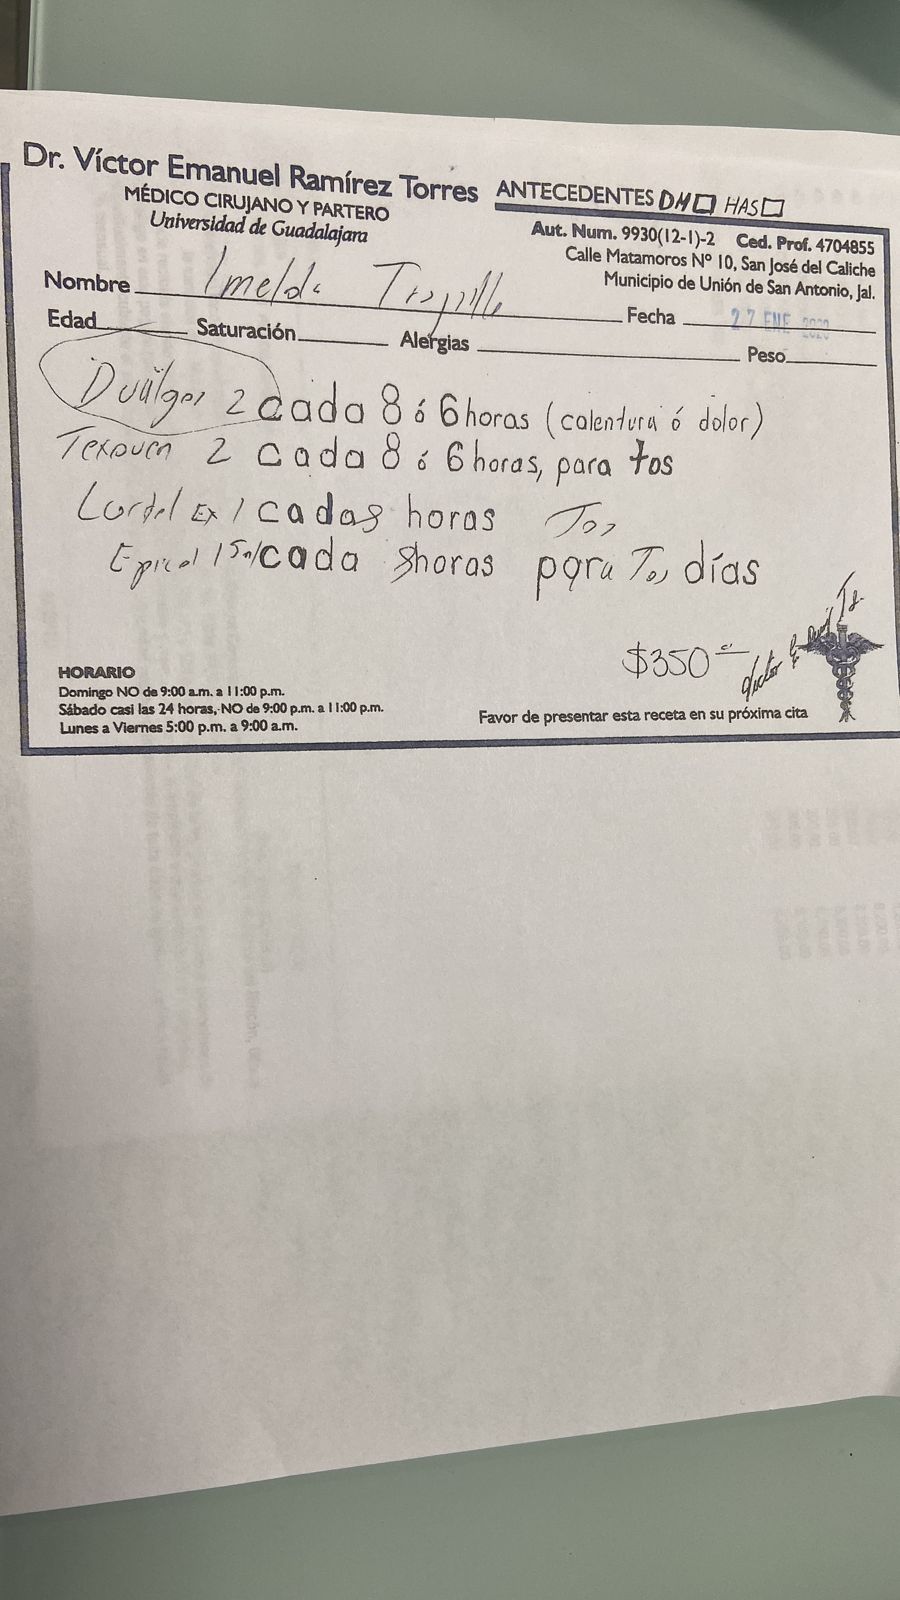 Dr. Víctor Emanuel Ramírez Torres
MÉDICO CIRUJANO Y PARTERO
Universidad de Guadalajara
ANTECEDENTES DM☐ HAS☐
Aut. Num. 9930(12-1)-2 Ced. Prof. 4704855
Calle Matamoros Nº 10, San José del Caliche
Municipio de Unión de San Antonio, Jal.
Nombre Imelda Trujillo
Fecha 27 ENE
Edad Saturación Alergias Peso
2 cada 8 ó 6 horas (calentura ó dolor)
2 cada 8 ó 6 horas, para tos
Ex 1 cada 8 horas Tos
cada 8 horas para Tos días
$350
HORARIO
Domingo NO de 9:00 a.m. a 11:00 p.m.
Sábado casi las 24 horas, NO de 9:00 p.m. a 11:00 p.m.
Lunes a Viernes 5:00 p.m. a 9:00 a.m.
Favor de presentar esta receta en su próxima cita